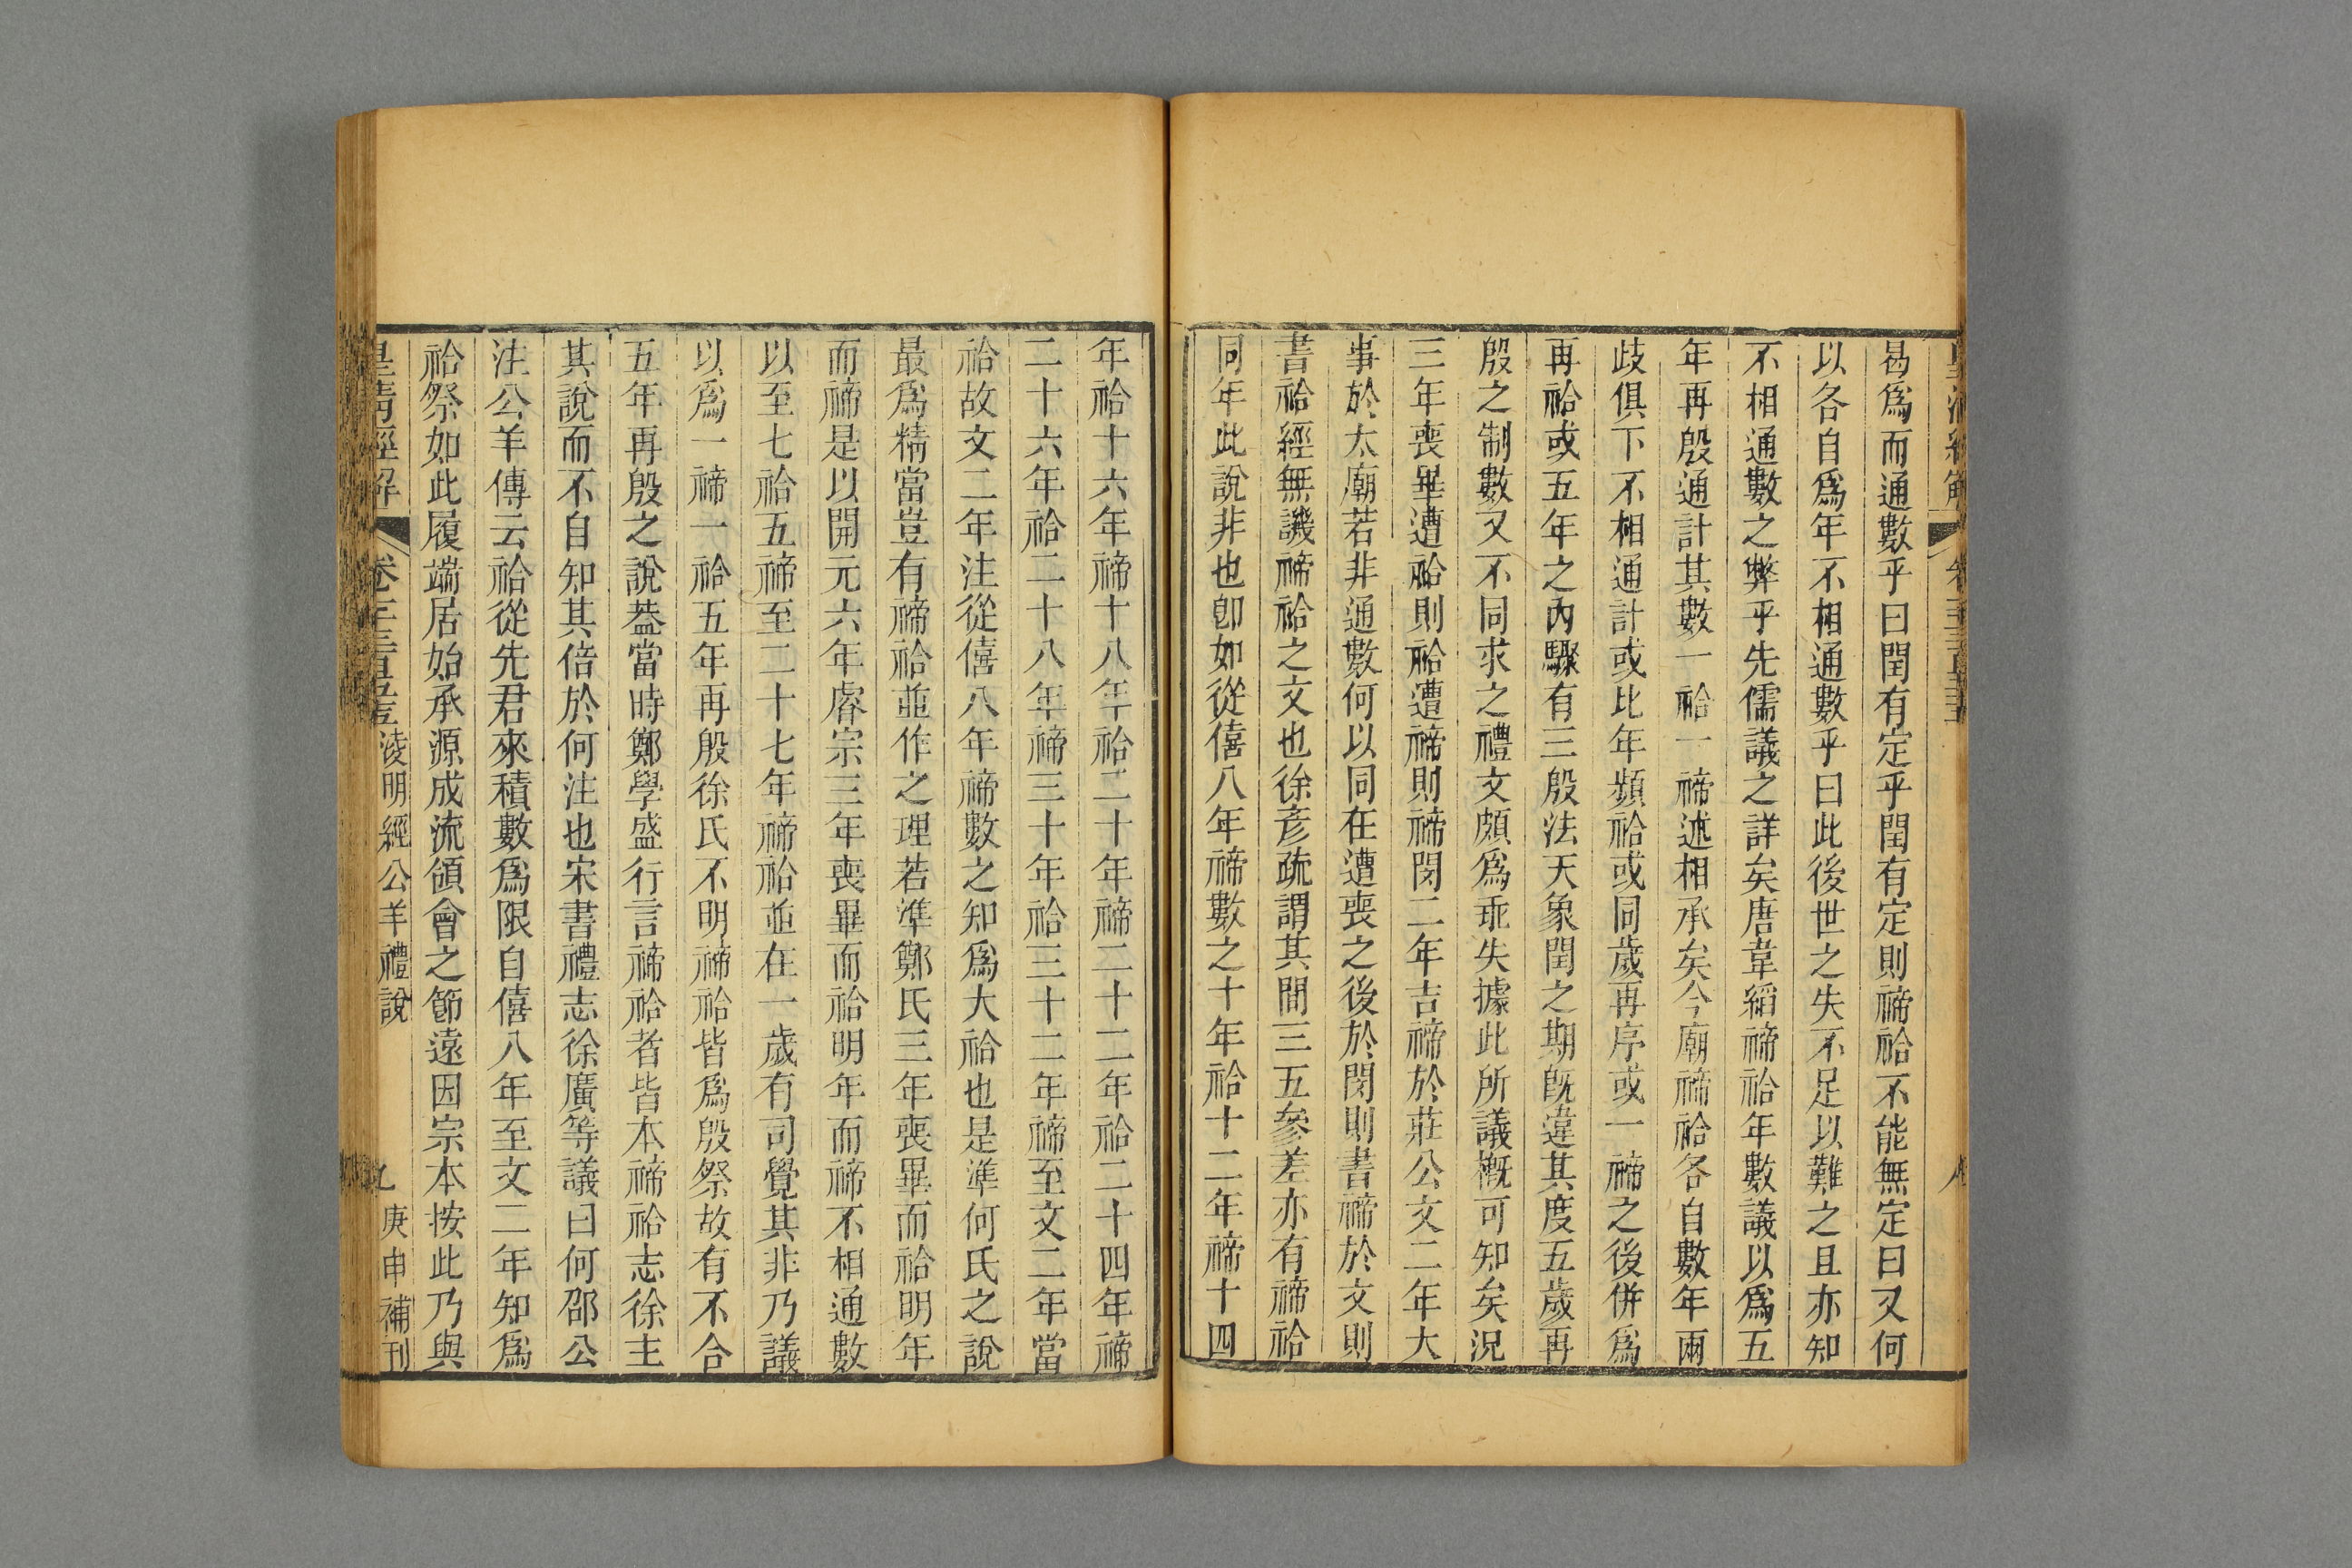 曷爲而通數乎曰閏有定乎閏有定則禘祫不能無定曰又何
以各自爲年不相通數乎曰此後世之失不足以難之且亦知
不相通數之弊乎先儒議之詳矣唐韋縚禘祫年數議以爲五
年再殷通計其數一祫一禘述相承矣今廟禘祫各自數年兩
歧俱下不相通計或比年頻祫或同歲再序或一禘之後併爲
再祫或五年之內驟有三殷法天象閏之期旣違其度五歲再
殷之制數又不同求之禮文頗爲乖失據此所議槪可知矣況
三年喪畢遭祫則祫遭禘則禘閔二年吉禘於莊公文二年大
事於太廟若非通數何以同在遭喪之後於閔則書禘於文則
書祫經無譏禘祫之文也徐彥疏謂其間三五參差亦有禘祫
同年此說非也卽如從僖八年禘數之十年祫十二年禘十四
年祫十六年禘十八年祫二十年禘二十二年祫二十四年禘
二十六年祫二十八年禘三十年祫三十二年禘至文二年當
祫故文二年注從僖八年禘數之知爲大祫也是準何氏之說
最爲精當豈有禘祫並作之理若準鄭氏三年喪畢而祫明年
而禘是以開元六年睿宗三年喪畢而祫明年而禘不相通數
以至七祫五禘至二十七年禘祫並在一歲有司覺其非乃議
以爲一禘一祫五年再殷徐氏不明禘祫皆爲殷祭故有不合
五年再殷之說葢當時鄭學盛行言禘祫者皆本禘祫志徐主
其說而不自知其倍於何注也宋書禮志徐廣等議曰何邵公
注公羊傳云祫從先君來積數爲限自僖八年至文二年知爲
祫祭如此履端居始承源成流領會之節遠因宗本按此乃與
皇清經解 凌明經公羊禮說 九 庚申補刊